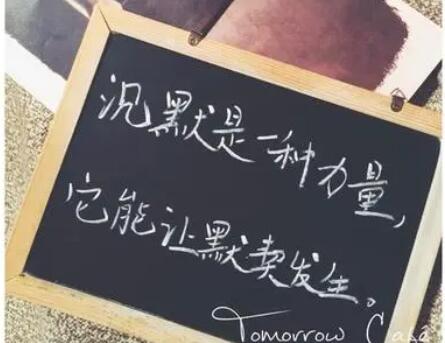 沉默是一种力量，
它能让默契发生。
Tomorrow Cafe